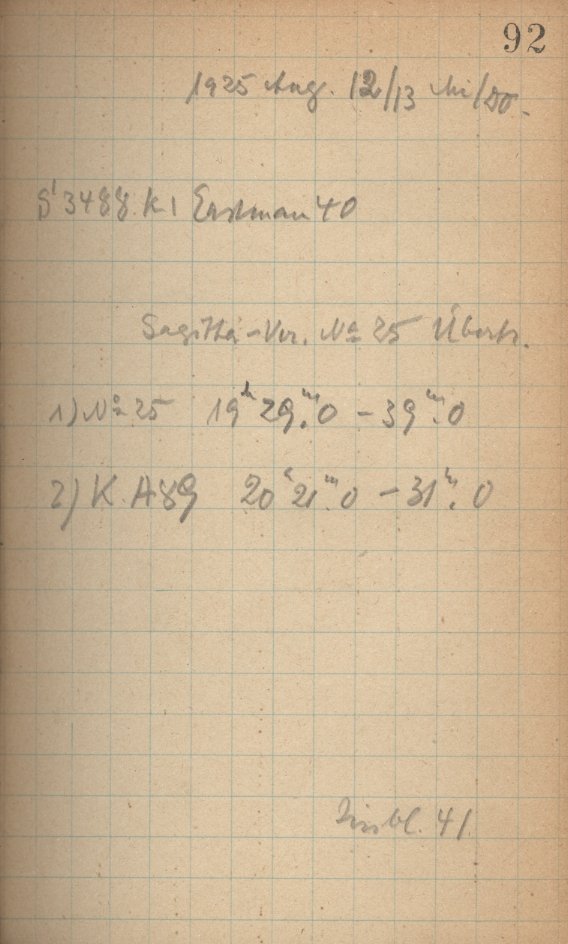 92
1925 Aug. 12/13 Mi/Do.
S' 3488 K1 Eastman 40
Sagitta-Ver. No 25 Übertr.
1) No 25 19h 29m.0 – 39m.0
2) K. A89 20h 21m.0 – 31m.0
41.